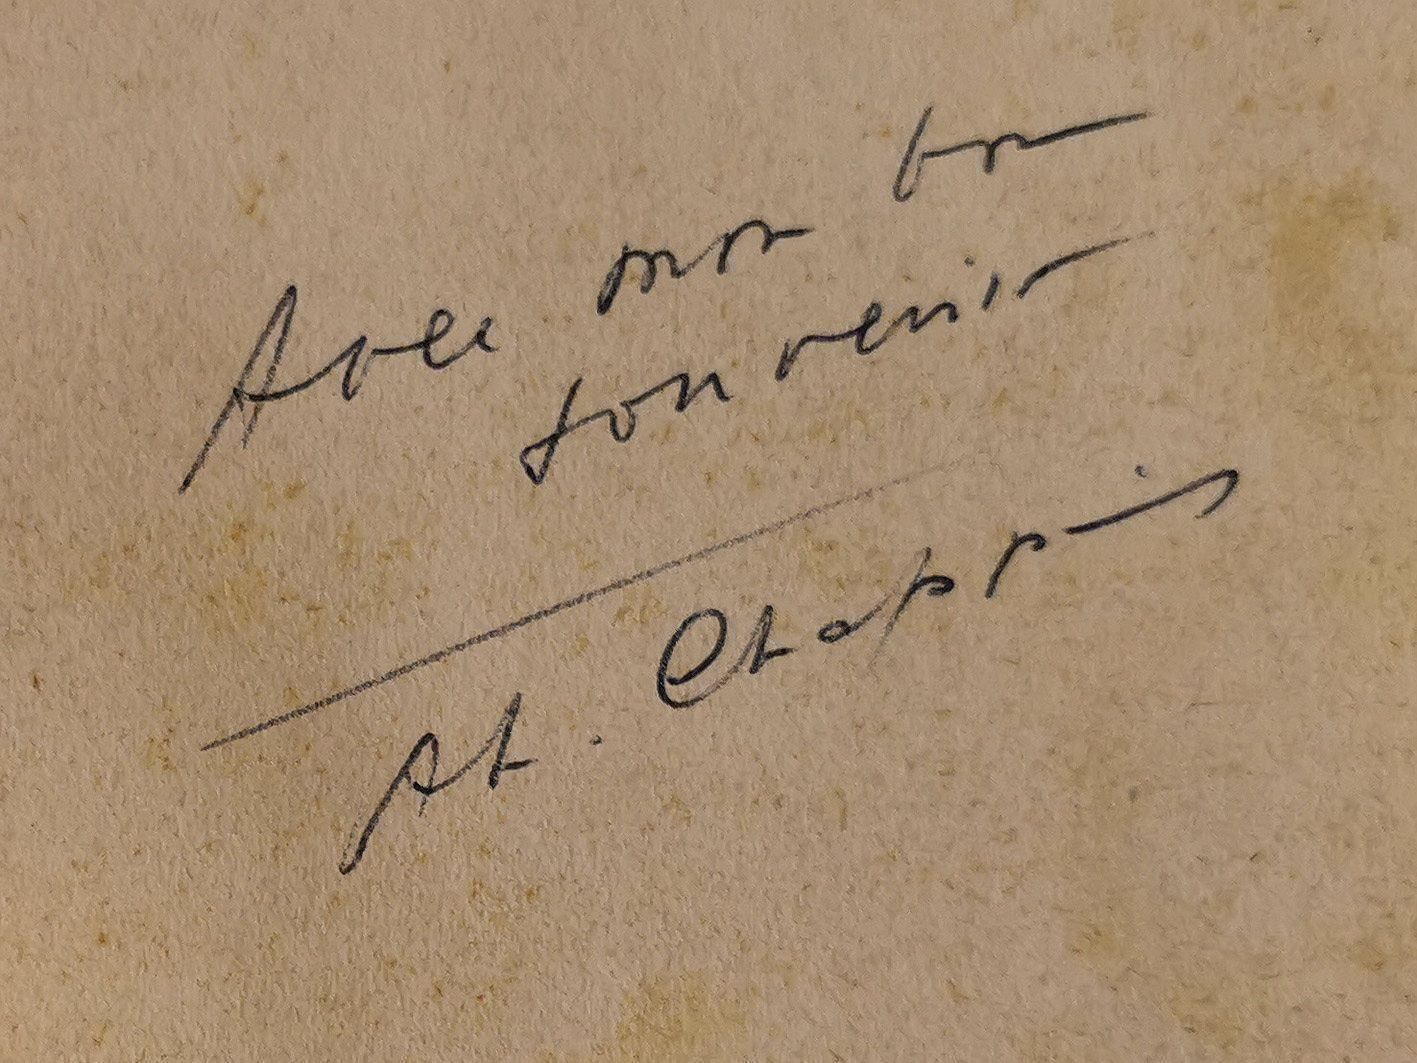 Avec mon bon
souvenir
Ah. Chappuis